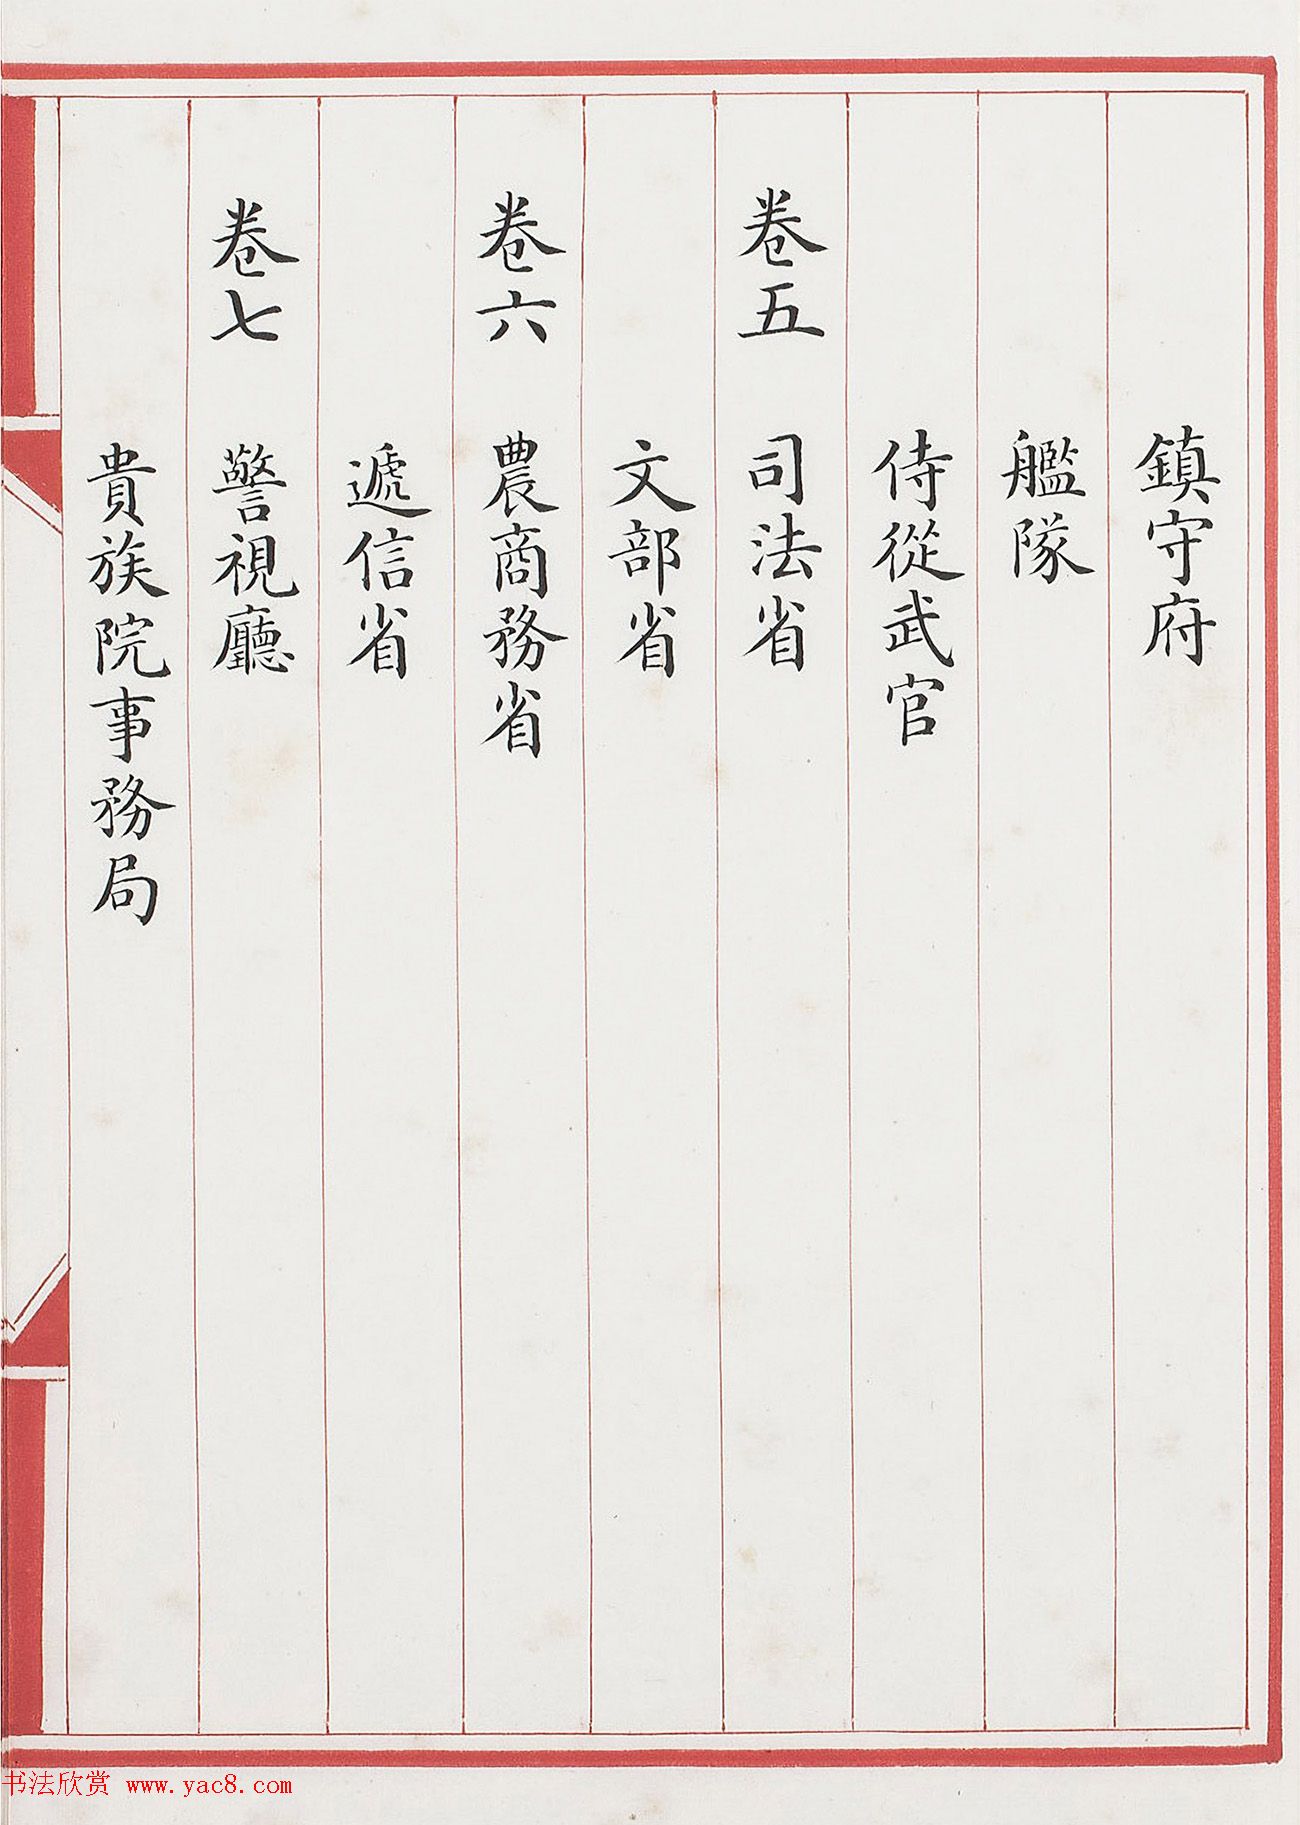 鎮守府
艦隊
侍從武官
卷五 司法省
文部省
卷六 農商務省
遞信省
卷七 警視廳
貴族院事務局
书法欣赏 www.yac8.com